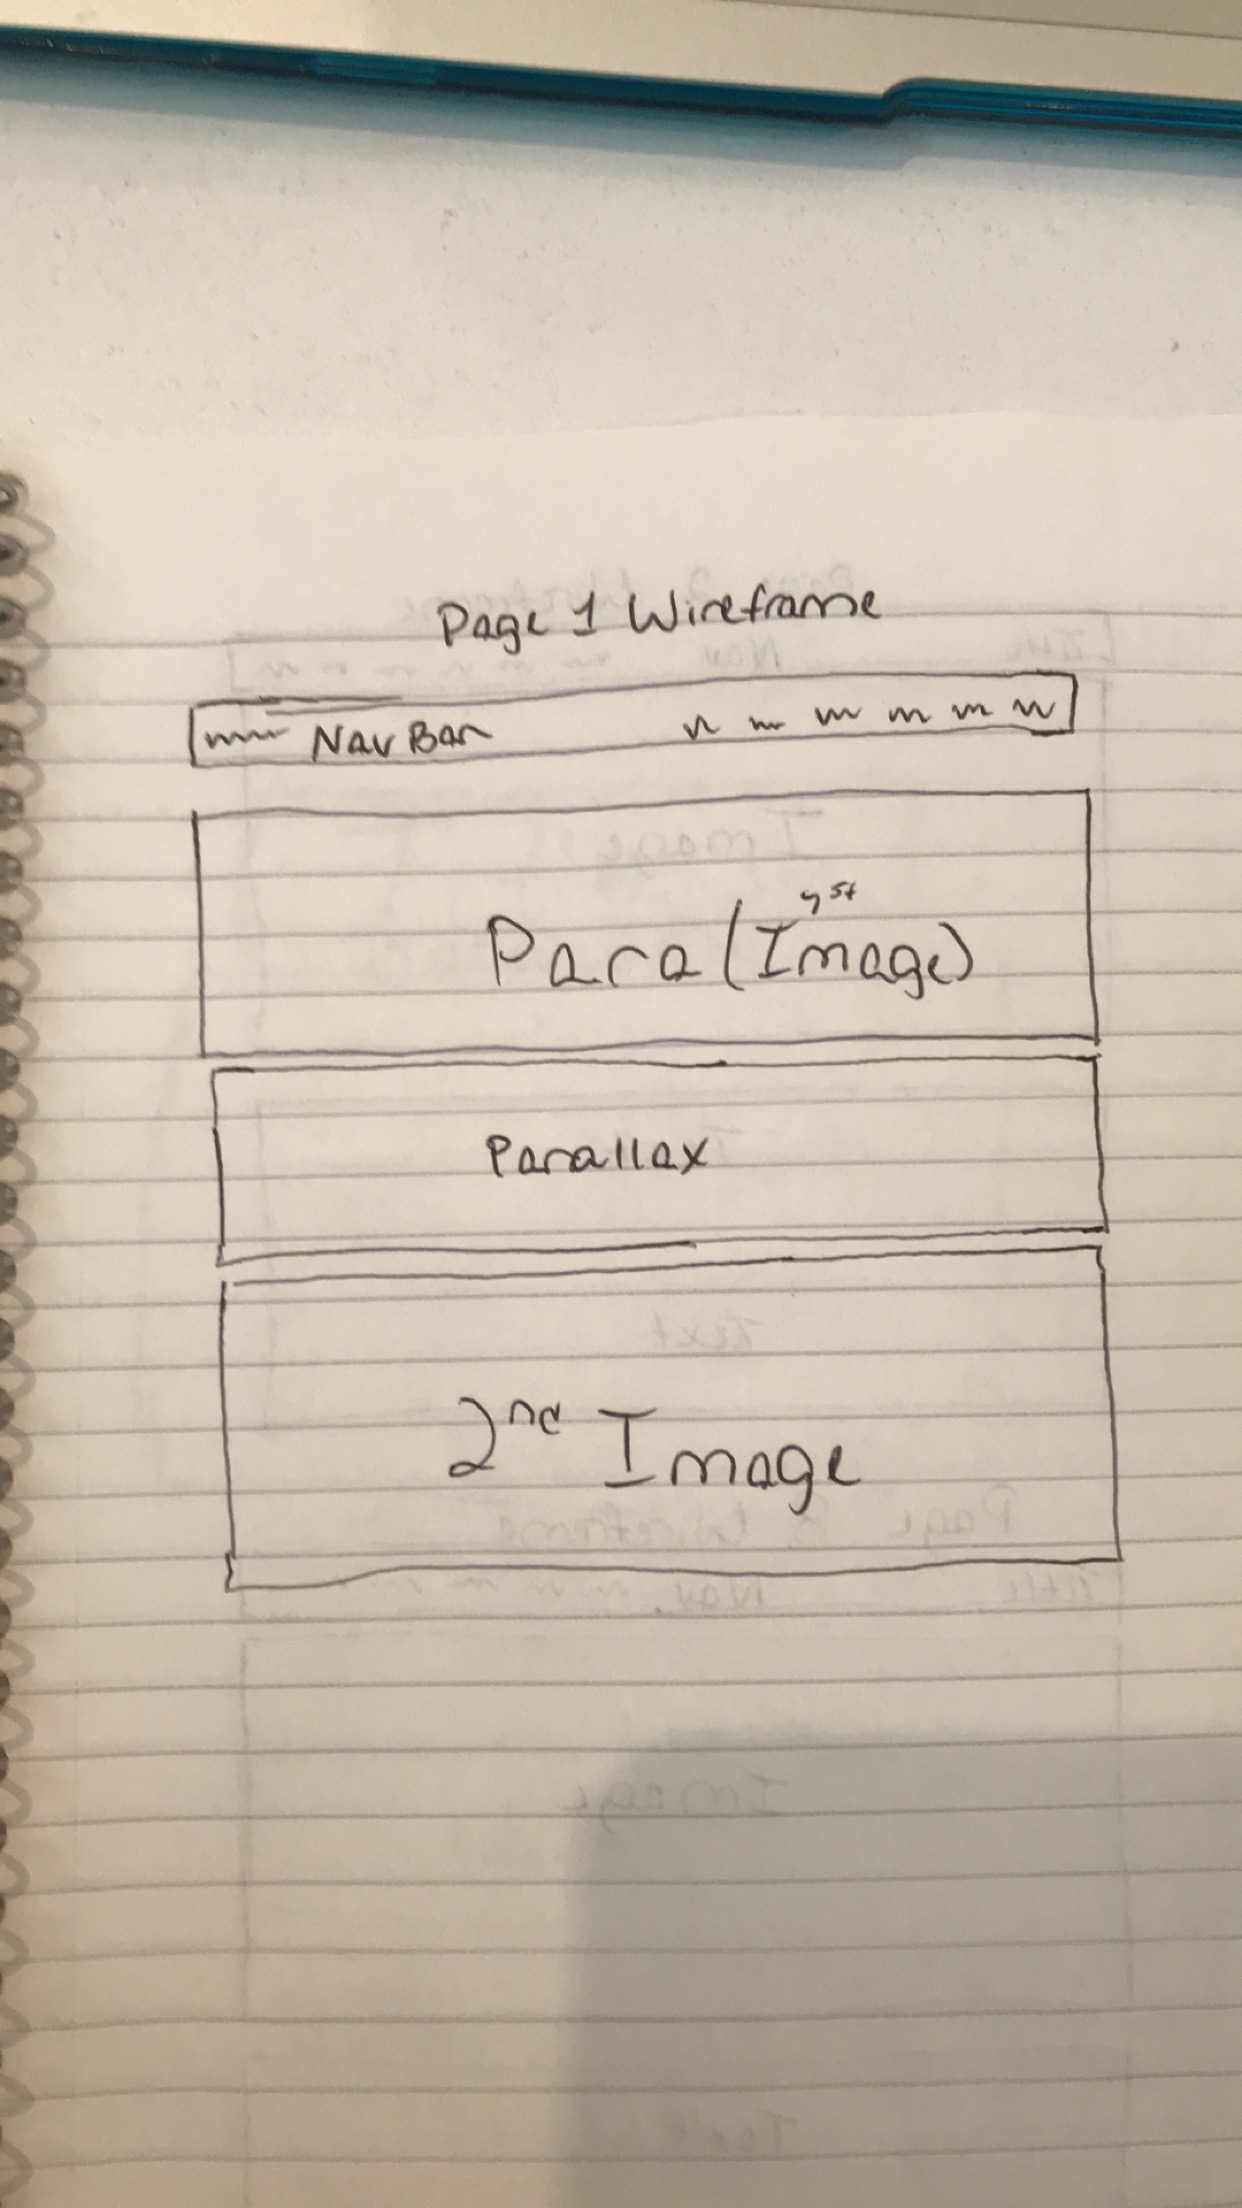 Page 1 Wireframe
Nav Bar
1st
Para (Image)
Parallax
2nd Image